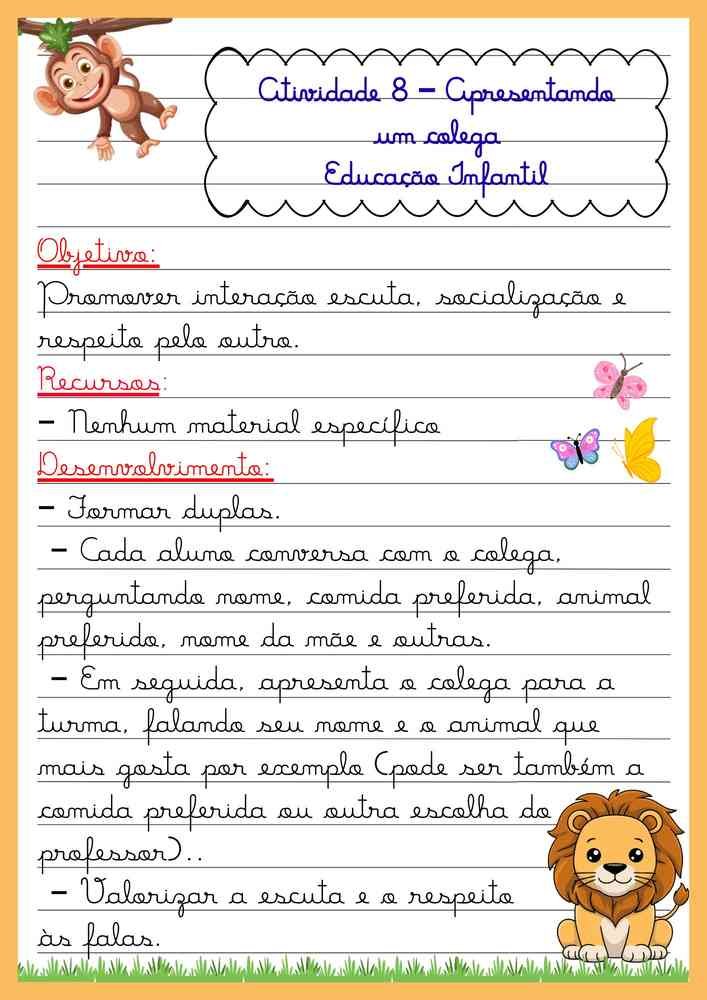 Atividade 8 – Apresentando
um colega
Educação Infantil
Objetivo:
Promover interação escuta, socialização e
respeito pelo outro.
Recursos:
– Nenhum material específico
Desenvolvimento:
– Formar duplas.
– Cada aluno conversa com o colega,
perguntando nome, comida preferida, animal
preferido, nome da mãe e outras.
– Em seguida, apresenta o colega para a
turma, falando seu nome e o animal que
mais gosta por exemplo (pode ser também a
comida preferida ou outra escolha do
professor)..
– Valorizar a escuta e o respeito
às falas.